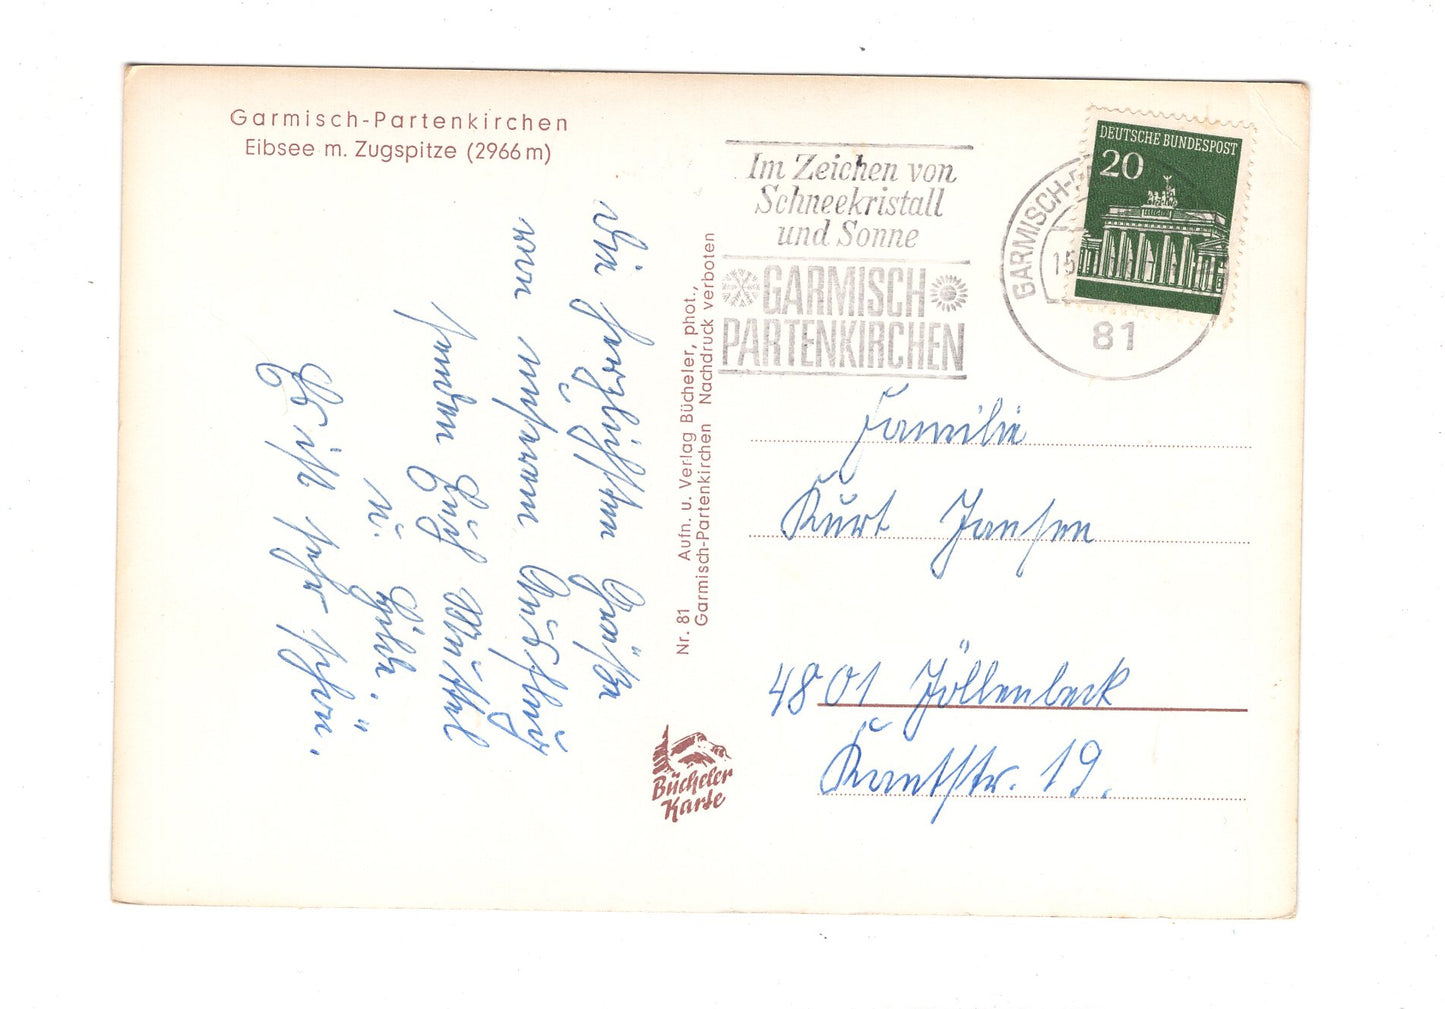 Garmisch-Partenkirchen
Eibsee m. Zugspitze (2966 m)
Die herzlichsten Grüße
von unserem Ausflug
senden Euch
u.
Es ist sehr schön.
Nr. 81 Aufn. u. Verlag Bücheler, phot.,
Garmisch-Partenkirchen Nachdruck verboten
Bücheler
Karte
Im Zeichen von
Schneekristall
und Sonne
GARMISCH
PARTENKIRCHEN
GARMISCH-
15
81
DEUTSCHE BUNDESPOST
20
Familie
Kurt Jansen
4801 Jöllenbeck
Kantstr. 19.